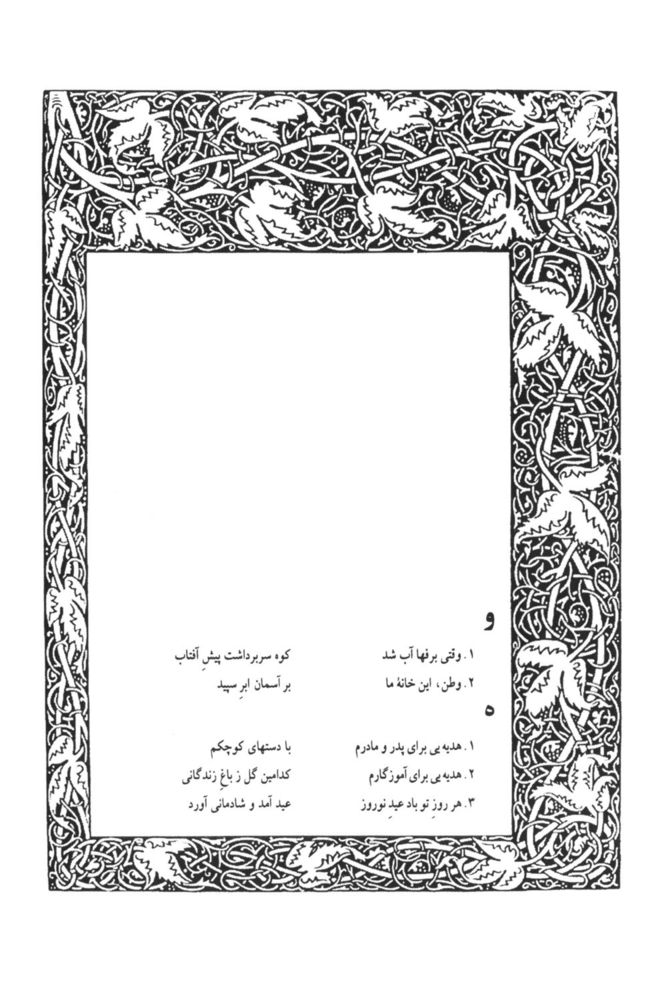 و
۱. وقتی برفها آب شد کوه سربرداشت پیشِ آفتاب
۲. وطن، این خانهٔ ما بر آسمان ابرِ سپید
ه
۱. هدیه‌یی برای پدر و مادرم با دستهای کوچکم
۲. هدیه‌یی برای آموزگارم کدامین گل ز باغِ زندگانی
۳. هر روزِ تو باد عیدِ نوروز عید آمد و شادمانی آورد